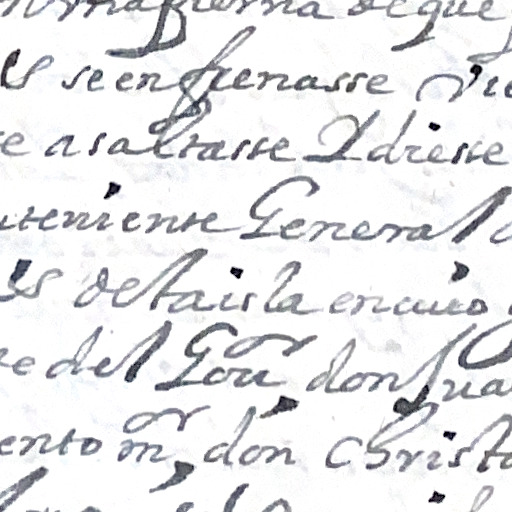 de que
se enfrenasse vie
e asaltasse Y diesse
uteniente General d
s de la isla en cuio
e del Gou^or don Jua
ento m^or, don Christo